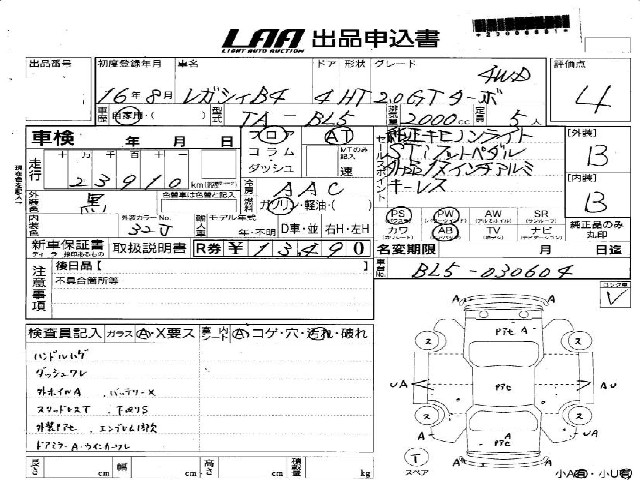 LAA 出品申込書
LIGHT AUTO AUCTION
出品番号 初度登録年月 車名 ドア 形状 グレード 評価点
16年8月 レガシィB4 4 HT 2.0GTターボ 4WD 4
車歴 自家用・( ) 型式 TA-BL5 排気量 2000cc 定員 5人
車検 年 月 日 フロア AT
コラム・ MTのみ記入
ダッシュ 速
走行 十 万 千 百 十
23910 km
セールスポイント 純正キセノンライト
STiフットペダル
キーレス
[外装] B
[内装] B
外装色 黒 色替車は色替と記入
冷房 AAC
燃料 ガソリン・軽油・( )
内装色 外装カラーNo. 32J 輸入車 モデル年式 年・不明 D車・並 右H・左H
PS PW AW SR
カワ AB TV ナビ
純正品のみ丸印
新車保証書 取扱説明書 R券 ¥13,490
名変期限 月 日迄
注意事項 後日品【 】
不具合箇所等
車台No. BL5-030604
検査員記入 ガラス A・X要ス 内 A コゲ・穴・汚れ・破れ
ハンドルハゲ
ダッシュワレ
外ホイルA バッテリーX
ドアミラーA・ウインカーワレ
長さ cm 幅 cm 高さ cm 積載量 kg
T スペア
小A・小U